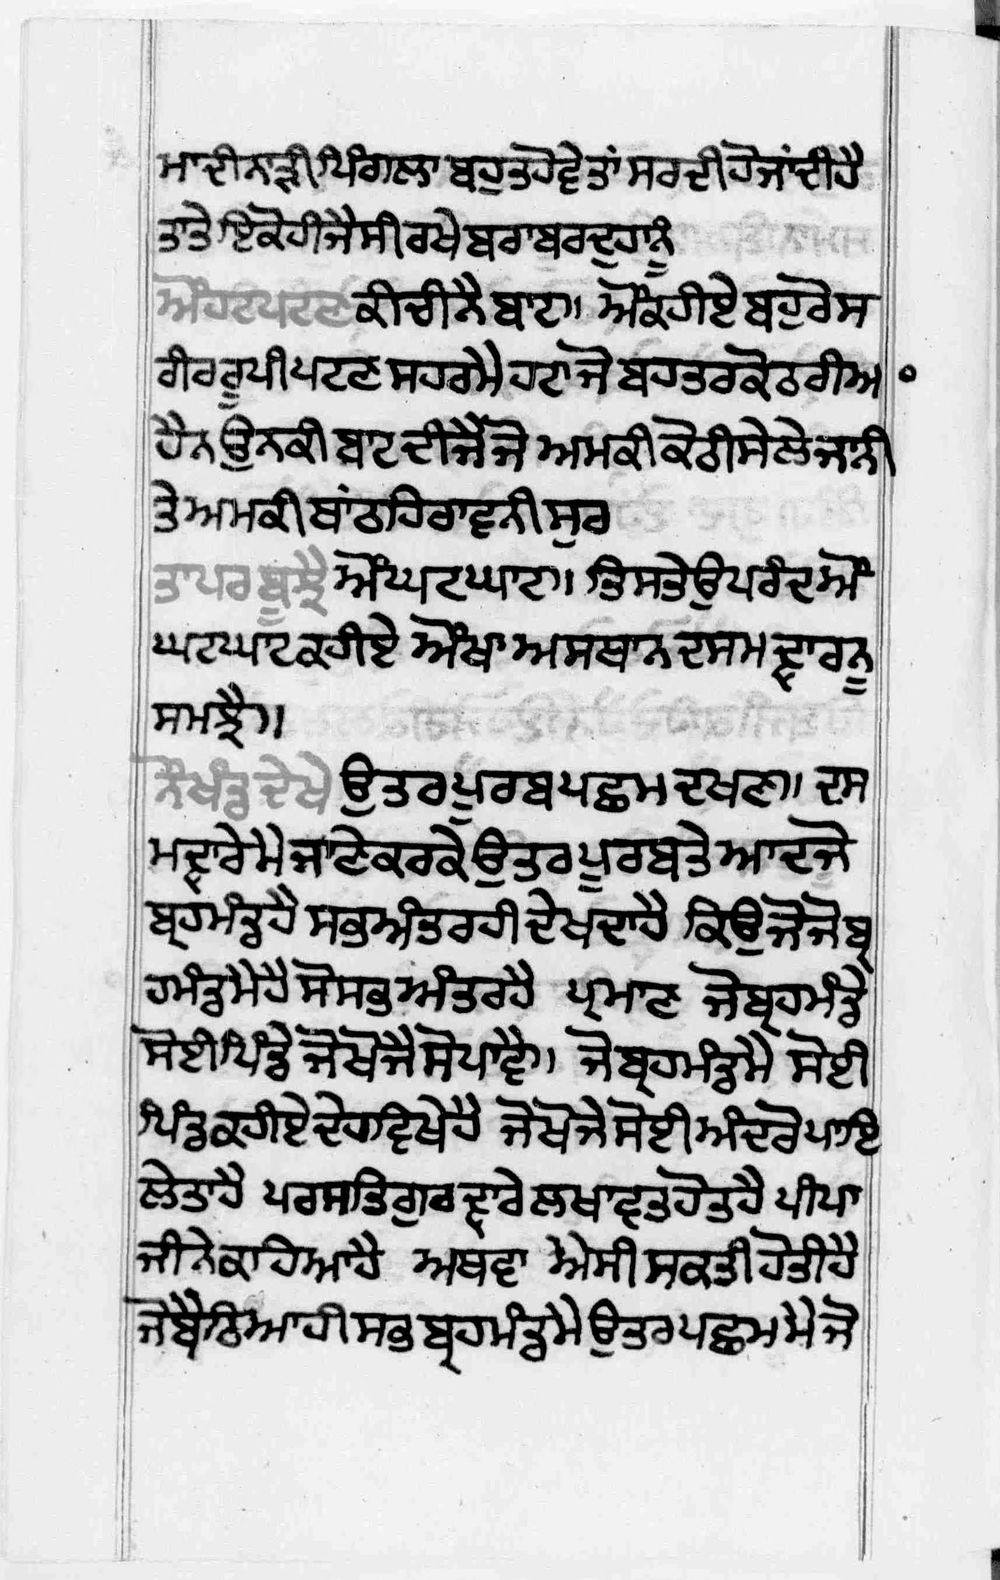 ਮਾਦੀਨਾੜੀਪਿੰਗਲਾ ਬਹੁਤਹੋਵੇਤਾਂ ਸਰਦੀਹੋਜਾਂਦੀਹੈ
ਤਾਤੇਇਕੋਹੀਜੈਸੀਰਖੇਬਰਾਬਰਦੁਹਾਨੂੰ
ਔਹਟਪਟਣਕੀਚੀਨੈਬਾਟ॥ ਔਕਹੀਏਬਹੁਰੋਸ
ਰੀਰਰੂਪੀਪਟਣਸਹਰਮੈਹਟਾਜੋਬਹਤਰਕੋਠਰੀਅ
ਹੈਨਉਨਕੀਬਾਟਦੀਜੈਜੋ ਅਮਕੀਕੋਠੀਸੇਲੇਜਾਨੀ
ਤੇਅਮਕੀਥਾਂਠਹਿਰਾਵਨੀਸੁਰ
ਤਾਪਰਬੂਝੈਔਘਟਘਾਟ॥ ਤਿਸਤੇਉਪਰੰਦਔ
ਘਟਘਾਟਕਹੀਏ ਔਖਾਅਸਥਾਨਦਸਮਦ੍ਵਾਰਨੂ
ਸਮਝੈ॥
ਨੌਖੰਡਦੇਖੇਉਤਰਪੁਰਬਪਛਮਦਖਣ॥ ਦਸ
ਮਦ੍ਵਾਰੇਮੈਜਾਣੇਕਰਕੇਉਤਰਪੂਰਬਤੇਆਦਜੋ
ਬ੍ਰਹਮੰਡਹੈਸਭਅੰਤਰਹੀਦੇਖਦਾਹੈ ਕਿਉਜੋਜੋਬ੍ਰ
ਹਮੰਡਮੈਹੈਸੋਸਭਅੰਤਰਹੈ ਪ੍ਰਮਾਣ ਜੋਬ੍ਰਹਮੰਡੇ
ਸੋਈਪਿੰਡੇਜੋਖੋਜੈਸੋਪਾਵੈ॥ ਜੋਬ੍ਰਹਮੰਡਮੈ ਸੋਈ
ਪਿੰਡਕਹੀਏਦੇਹਵਿਖੇਹੈ ਜੋਖੋਜੇਸੋਈਅੰਦਰੋਪਾਇ
ਲੇਤਾਹੈ ਪਰਸਤਿਗੁਰਦ੍ਵਾਰੇਲਖਾਵਤਹੋਤਹੈ ਪੀਪਾ
ਜੀਨੇਕਾਹਿਆਹੈ ਅਥਵਾ ਐਸੀਸਕਤੀਹੋਤੀਹੈ
ਜੋਬੈਠਿਆਹੀਸਭਬ੍ਰਹਮੰਡਮੈਉਤਰਪਛਮਮੈਜੋ